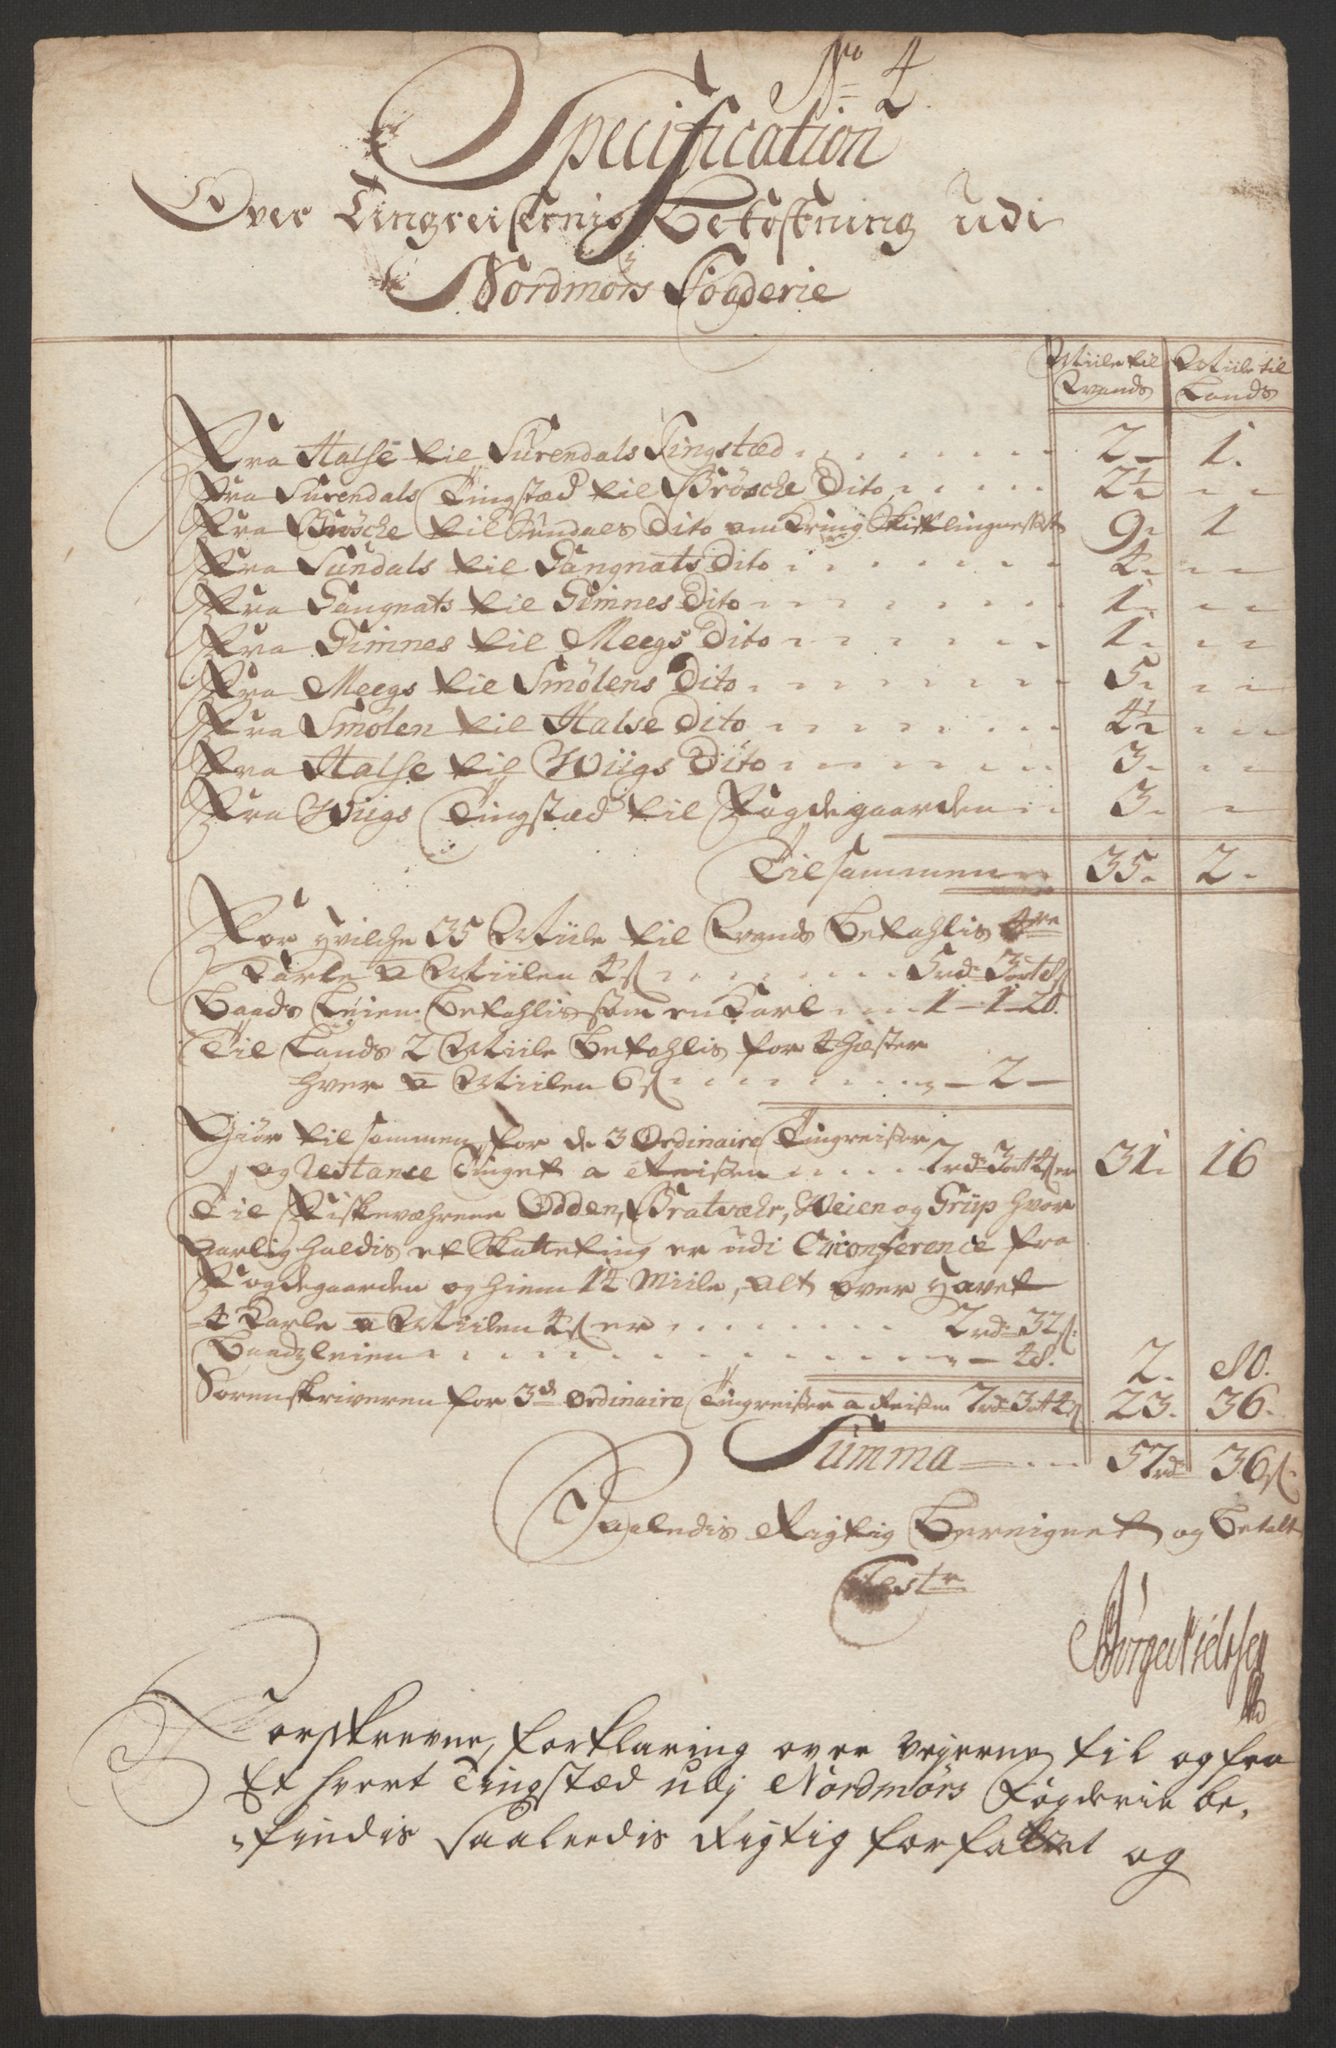 No 4
Specification
Over Tingreisernis Bekostning udi
Nordmørs Fogderie
Miile til Vands
Miile til Lands
Fra Halse til Surendals Tingstæd 2 - 1.
Fra Surendals Tingstæd til Brøsche Dito 2½
Fra Brøsche til Sundals Dito omkring 9. 1
Fra Sundals til Gangnats Dito 4.
Fra Gangnats til Gimnes Dito 1.
Fra Gimnes til Meegs Dito 1.
Fra Meegs til Smølens Dito 5.
Fra Smølen til Halse Dito 4½
Fra Halse til Wiigs Dito 3.
Fra Wiigs Tingstæd til Fogdegaarden 3.
Tilsammen 35. 2.
For hvilche 35 Miile til Vands betahlis 4re
Karle a Miilen 4s 5rd 3ort 8s
Baads Leien betahlis som en Karl 1 - 1 - 20.
Til Lands 2 Miile betahlis for 4 Hæster
hver a Miilen 6s 2 -
Giør tilsammen for de 3 Ordinaire Tingreiser
og Restance Tinget a Reisen 7rd 3ort 4s er 31. 16
Til Fiskeværene Odden, Bratvæhr, Weien og Grüp hvor
aarlig holdis et Skatteting er udi Circonference fra
Fogdegaarden og hiem 14 Miile, alt over Havet
4 Karle a Miilen 4s er 2rd 32s.
Baadzleien 48. 2. 80.
Sorenskriveren for 3de Ordinaire Tingreiser a Reisen 7rd 3ort 4s 23. 36.
Summa 57rd 36s.
Saaledis Rigtig Bereignet og Betalt
Test
Børge Nielsen
Forskrevne forklaring over Vejerne til og fra
Et hvert Tingstæd udj Nordmørs Fogderie be-
findis saaledis Rigtig forfattet og